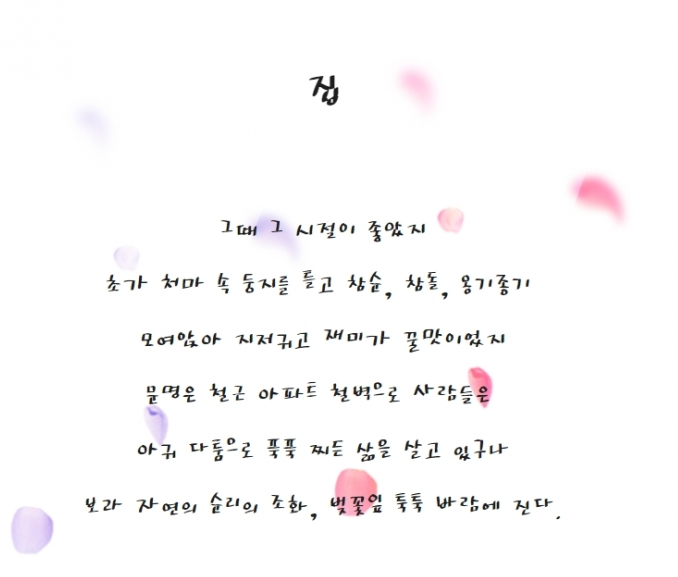 집
그때 그 시절이 좋았지
초가 처마 속 둥지를 틀고 참순, 참돌, 옹기종기
모여앉아 지저귀고 재미가 꿀맛이었지
문명은 철근 아파트 철벽으로 사람들은
아귀 다툼으로 푹푹 찌든 삶을 살고 있구나
보라 자연의 순리의 조화, 벚꽃잎 툭툭 바람에 진다.